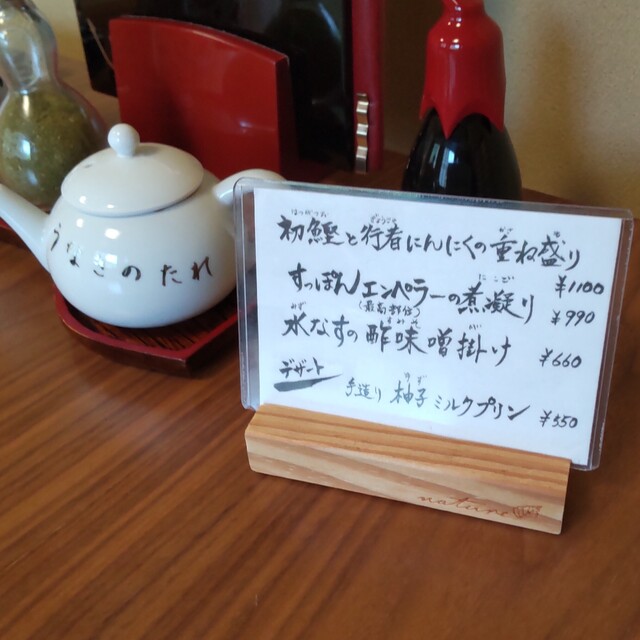 うなぎのたれ
初鰹と行者にんにくの重ね盛り ¥1100
すっぽんエンペラーの煮凝り ¥990
水なすの酢味噌掛け ¥660
デザート
手造り 柚子ミルクプリン ¥550
nature